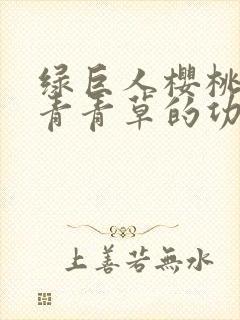 绿巨人樱桃
青青草的功
上善若無水